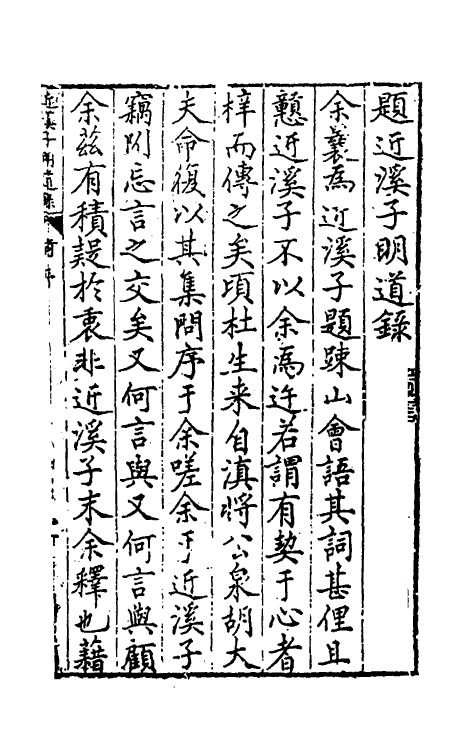 題近溪子明道錄
余曩為近溪子題踈山會語其詞甚俚且
戇近溪子不以余為迕若謂有契于心者
梓而傳之矣頃杜生来自滇將公泉胡大
夫命復以其集問序于余嗟余于近溪子
竊附忘言之交矣又何言與又何言與顧
余茲有積疑於衷非近溪子末余釋也藉
近溪子明道錄